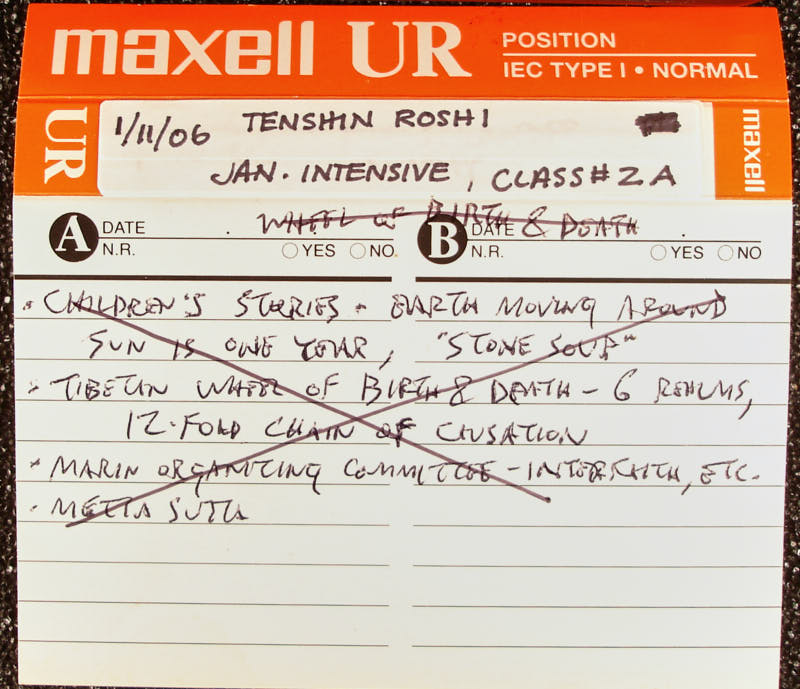 maxell UR POSITION
IEC TYPE I • NORMAL
UR
1/11/06 TENSHIN ROSHI
JAN. INTENSIVE, CLASS# 2A
maxell
WHEEL OF BIRTH & DEATH
A DATE
N.R. YES NO
B DATE
N.R. YES NO
• CHILDREN'S STORIES - EARTH MOVING AROUND
SUN IS ONE YEAR, "STONE SOUP"
• TIBETAN WHEEL OF BIRTH & DEATH - 6 REALMS,
12-FOLD CHAIN OF CAUSATION
• MARIN ORGANIZING COMMITTEE - INTERFAITH, ETC.
• METTA SUTTA